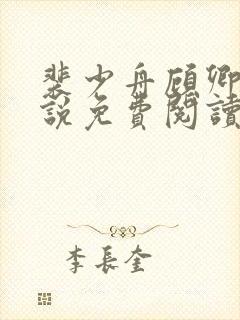 裴少舟顾卿
說免費閱讀
李長奎